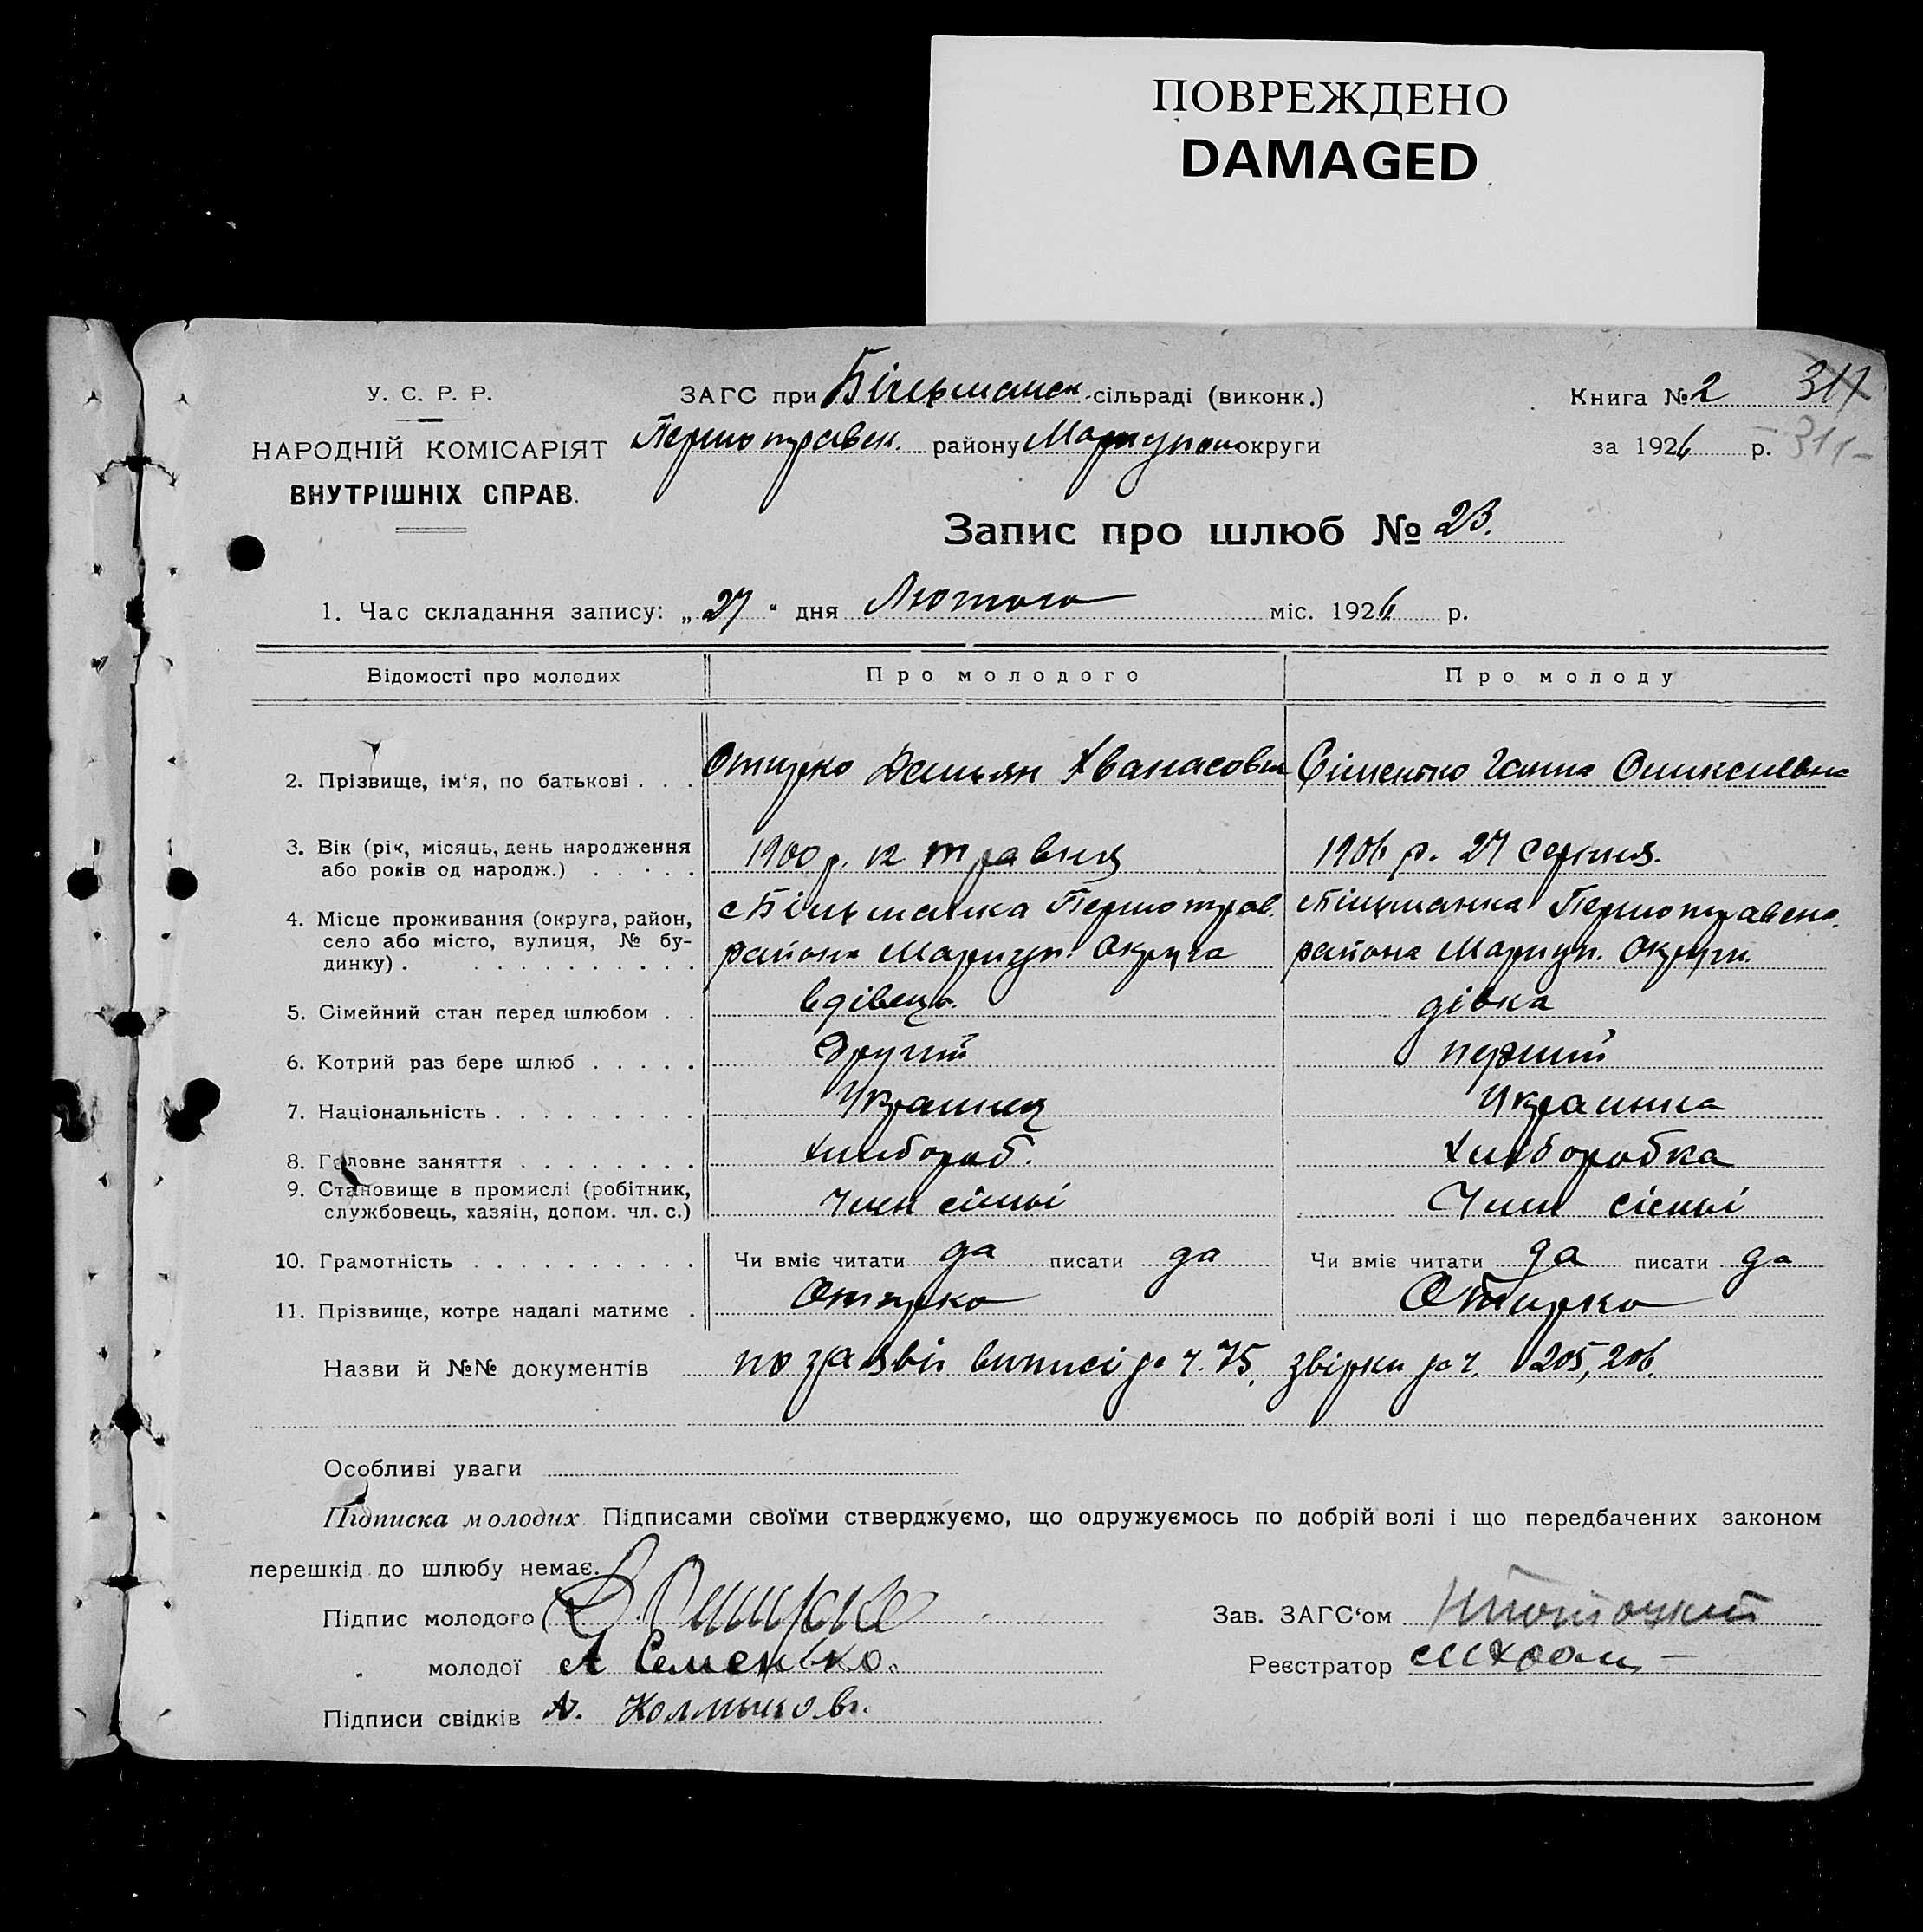 ПОВРЕЖДЕНО
DAMAGED
У. С. Р. Р.
НАРОДНІЙ КОМІСАРІЯТ
ВНУТРІШНІХ СПРАВ.
ЗАГС при Більманск. сільраді (виконк.)
Першотравен. району Маріупол округи
Книга № 2 311
за 1926 р. 311
Запис про шлюб № 23.
1. Час складання запису: „ 27 “ дня Лютого міс. 1926 р.
Відомості про молодих Про молодого Про молоду
2. Прізвище, ім‘я, по батькові . . . Отирко Демьян Хванасович Сіменко Ганна Оликсиевна
3. Вік (рік, місяць, день народження
або років од народж.) . . . . . 1900 р. 12 травня 1906 р. 27 серпня.
4. Місце проживання (округа, район,
село або місто, вулиця, № бу-
динку) . . . . . . . . . .
с Більманка Першотрав. района Мариуп. Округа
с Більманка Першотравено. района Мариуп. Округи.
5. Сімейний стан перед шлюбом . . вдівець. дівка
6. Котрий раз бере шлюб . . . . . Другий перший
7. Національність . . . . . . . . . Украинец Украинка
8. Головне заняття . . . . . . . . Хлибороб. Хлиборобка
9. Становище в промислі (робітник,
службовець, хазяін, допом. чл. с.) Член сімьі Член сісмьі
10. Грамотність . . . . . . . . . . Чи вміє читати да писати да Чи вміє читати да писати да
11. Прізвище, котре надалі матиме . Отирко Отирко
Назви й №№ документів по заяві виписі за ч. 75, звірки за ч. 205, 206.
Особливі уваги
Підписка молодих. Підписами своїми стверджуємо, що одружуємось по добрій волі і що передбачених законом
перешкід до шлюбу немає.
Підпис молодого Д. Отирко Зав. ЗАГС‘ом
„ молодої А Семенько. Реєстратор
Підписи свідків А.